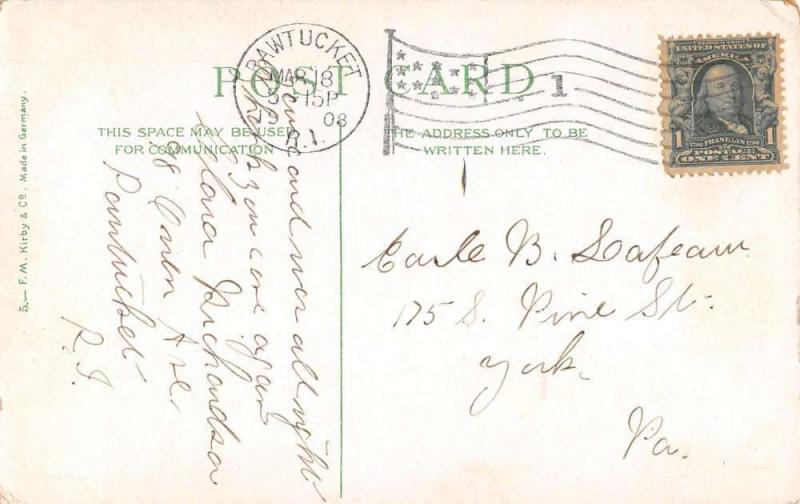 POST CARD
THIS SPACE MAY BE USED
FOR COMMUNICATION
THE ADDRESS ONLY TO BE
WRITTEN HERE.
PAWTUCKET
MAR 18
15P
08
R.I.
1
SERIES 1902
UNITED STATES OF
AMERICA
1 1706 FRANKLIN 1790 1
POSTAGE
ONE CENT
5.— F. M. Kirby & Co. Made in Germany.
and was all right
Thank you once again
Richardson
98 Ave.
Pawtucket
R.I.
Earle B. Lafean
175 S. Pine St.
York.
Pa.